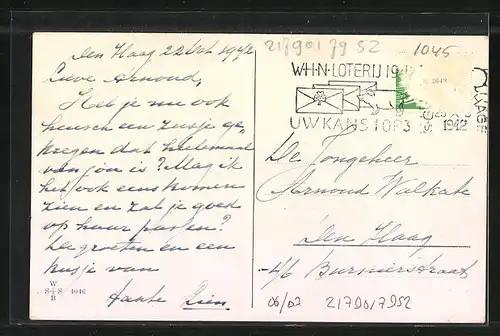 217901 79 52
1045
Den Haag 22 Oct 1942
Lieve Arnoud,
Heb je nu ook
heusch een zusje ge-
kregen dat heelemaal
van jou is? Mag ik
het ook eens komen
zien en zal je goed
op haar passen?
De groeten en een
kusje van
tante Zien
W
S+S 4046
B
W·H·N·LOTERIJ 19
UW KANS 1 OP 3
1942
De Jongeheer
Arnoud Walkate
Den Haag
46 Burnierstraat
06/07 217901 7952